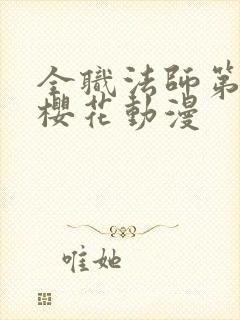 全職法師第
櫻花動漫
唯她